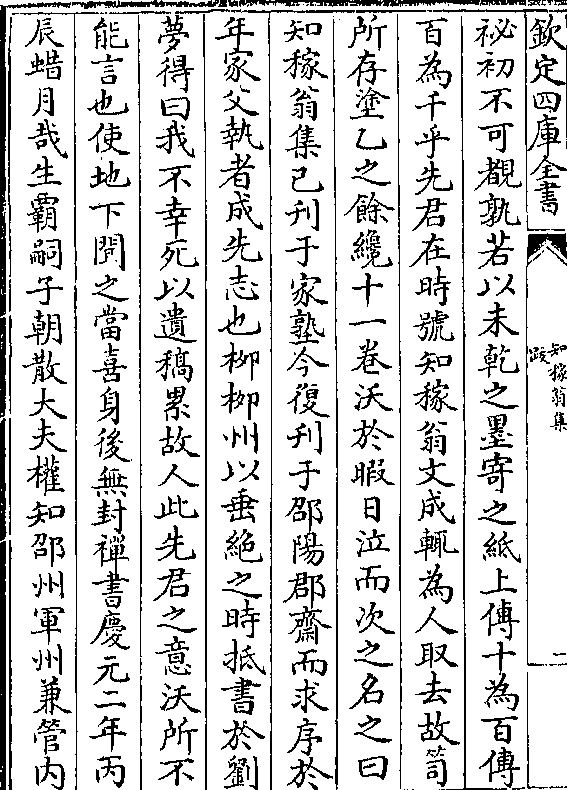 欽定四庫全書
知稼翁集
跋
一
祕初不可覩孰若以未乾之墨寄之紙上傳十為百傳
百為千乎先君在時號知稼翁文成輒為人取去故笥
所存塗乙之餘纔十一卷沃於暇日泣而次之名之曰
知稼翁集已刊于家塾今復刊于邵陽郡齋而求序於
年家父執者成先志也柳柳州以垂絶之時抵書於劉
夢得曰我不幸死以遺稿累故人此先君之意沃所不
能言也使地下聞之當喜身後無封禪書慶元二年丙
辰蜡月哉生霸嗣子朝散大夫權知邵州軍州兼管内